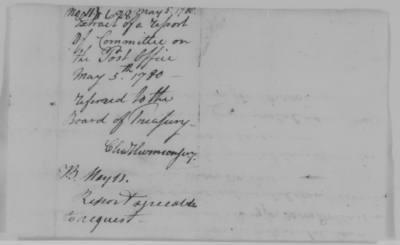 May 5, 1780
Extract of a report
Of Committee on
the Post Office
May 5th 1780 —
referred to the
Board of Treasury —
Cha Thomson secy
B. May 13.
Report agreeable
to request —